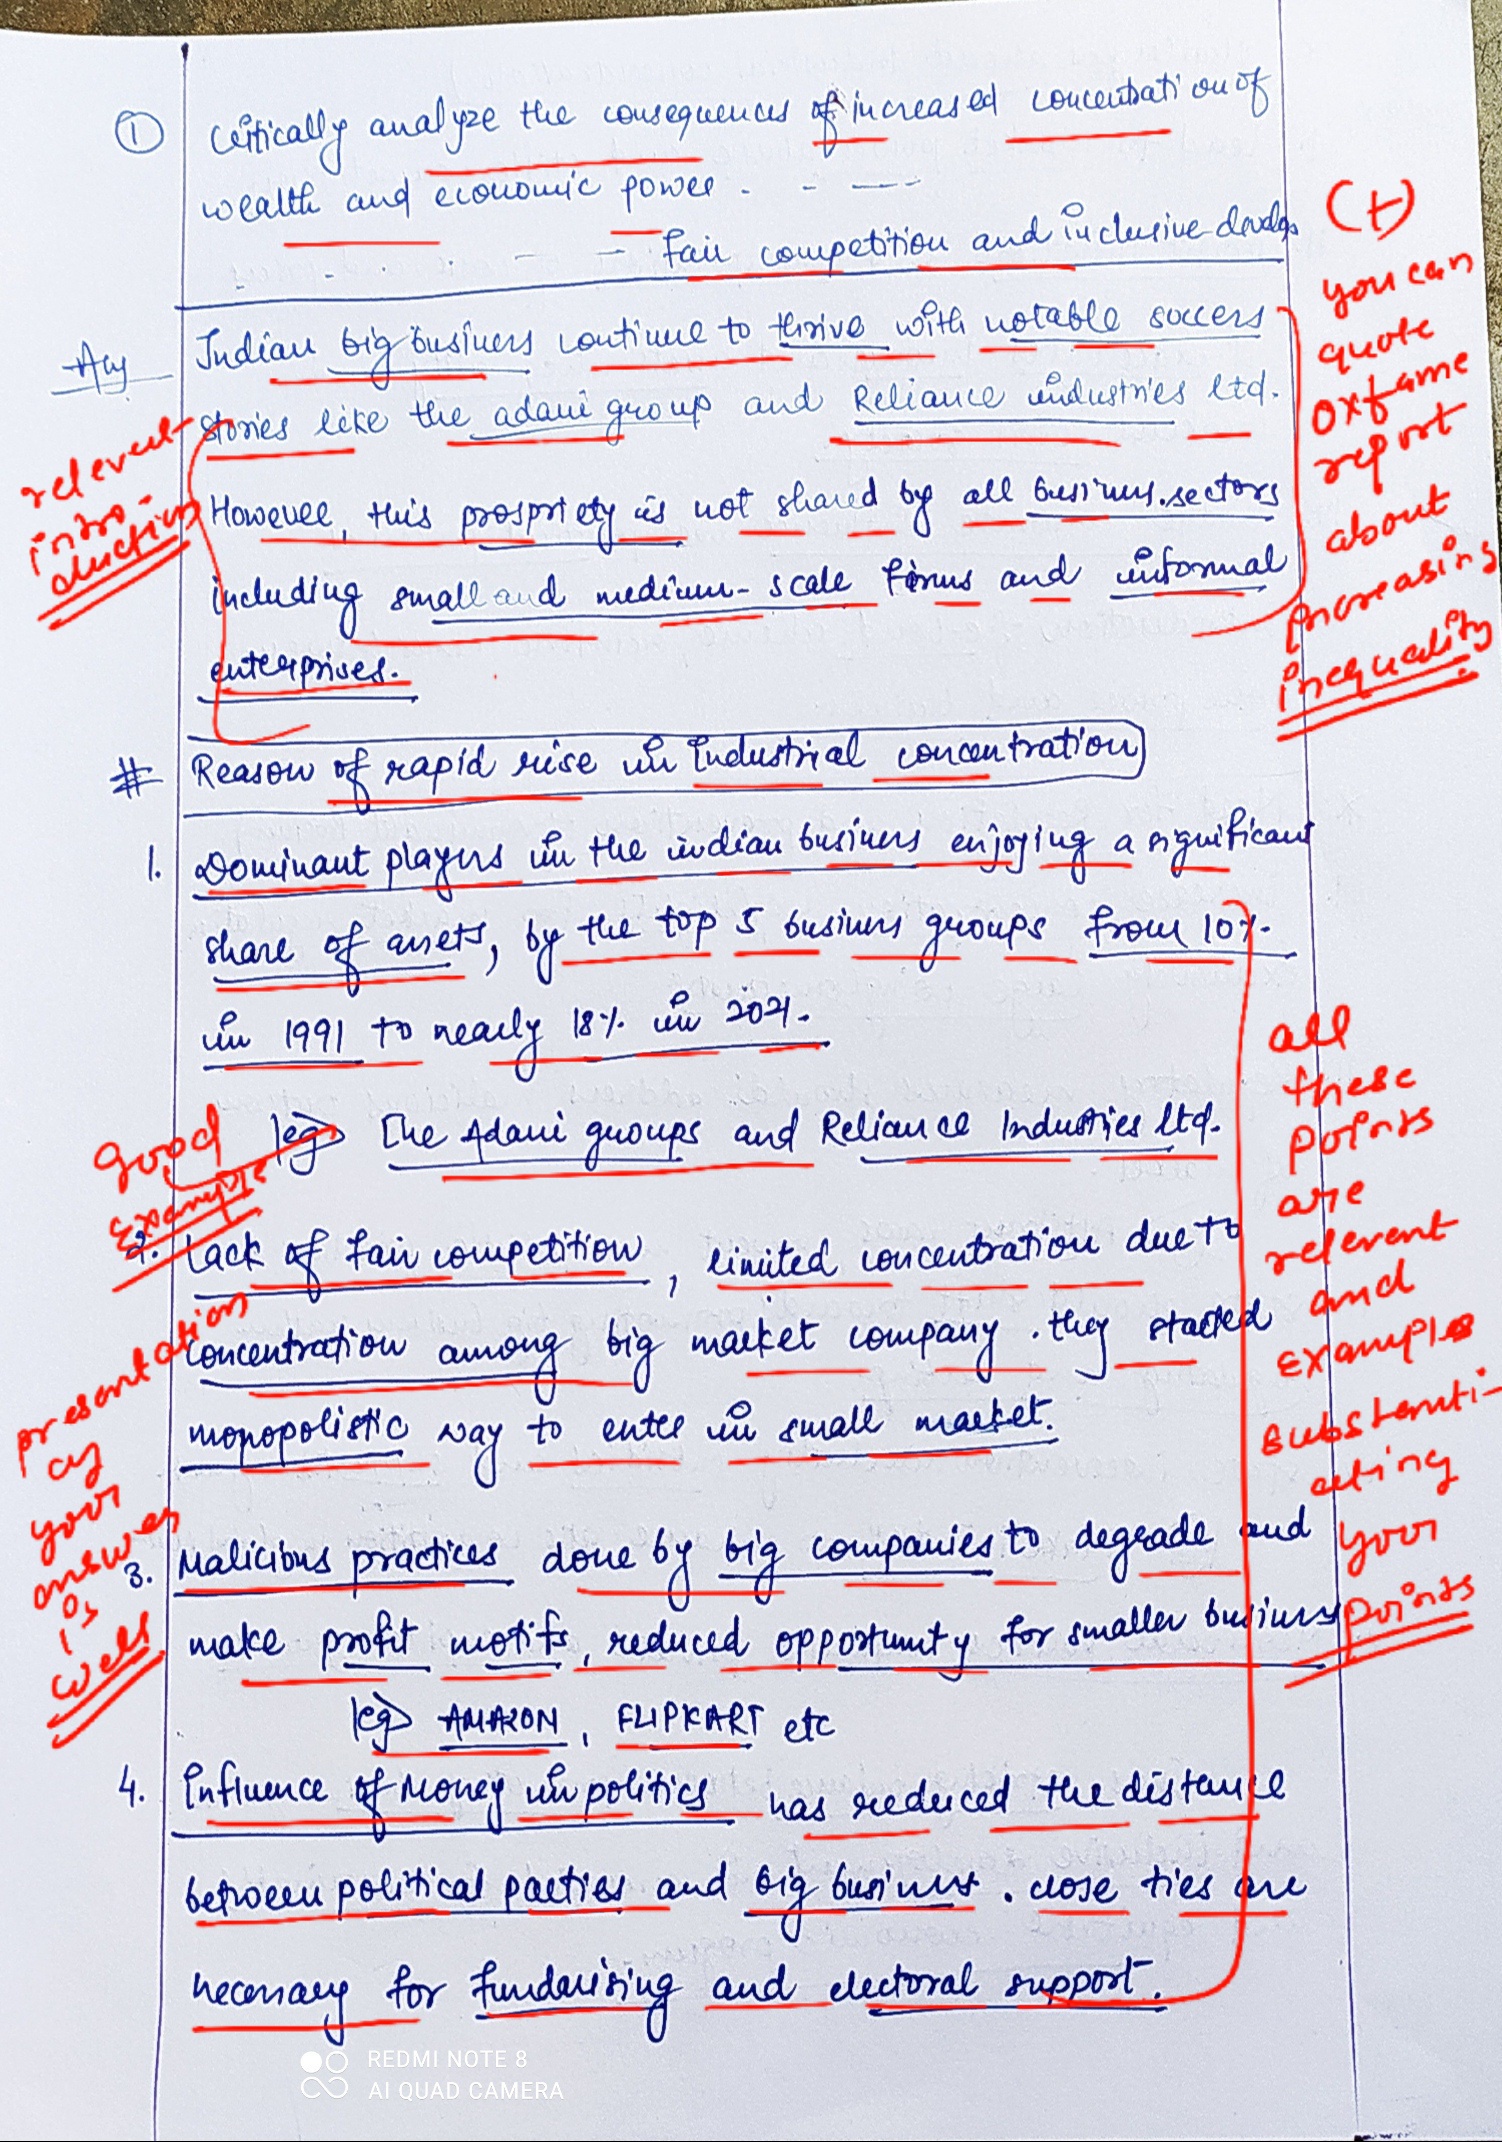 ① Critically analyze the consequences of increased concentration of
wealth and economic power - - - —
- - fair competition and inclusive develop
Ans Indian big business continue to thrive with notable success
stories like the adani group and Reliance industries ltd.
However, this prospriety is not shared by all business sectors
including small and medium-scale firms and informal
enterprises.
relevent
intro-
duction
(+)
you can
quote
oxfame
report
about
increasing
inequality
# Reason of rapid rise in Industrial concentration
1. Dominant players in the indian business enjoying a significant
share of assets, by the top 5 business groups from 10%
in 1991 to nearly 18% in 2021.
eg> The Adani groups and Reliance Industries ltd.
Good
Example
2. Lack of fair competition, limited concentration due to
concentration among big market company. they started
monopolistic way to enter in small market.
presentation
of
your
answer
is
well
all
these
points
are
relevent
and
Examples
substenti-
ating
your
points
3. Malicious practices done by big companies to degrade and
make profit motifs, reduced opportunity for smaller business
eg> AMAZON, FLIPKART etc
4. Influence of Money in politics has reduced the distance
between political parties and big business. close ties are
necessary for fundarising and electoral support.
REDMI NOTE 8
AI QUAD CAMERA